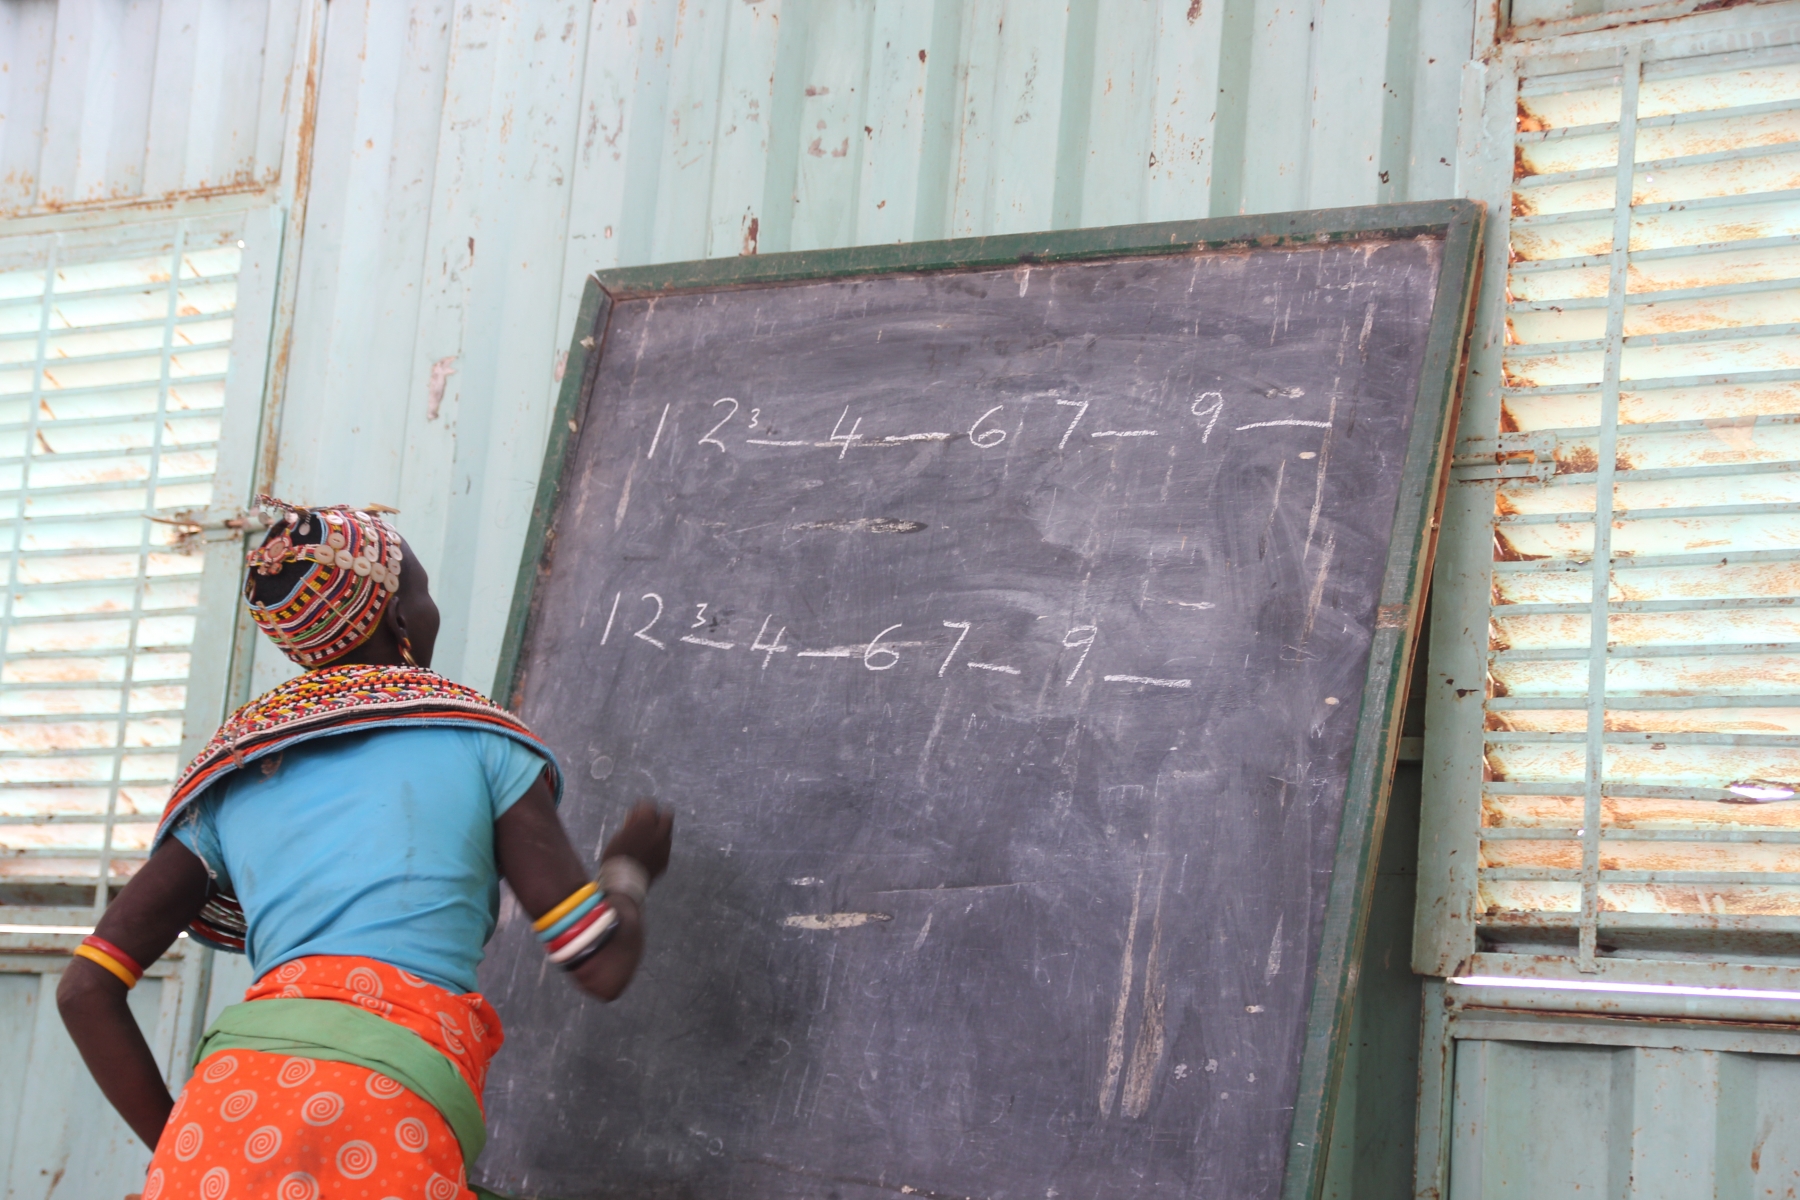 1 2 3 4 _ 6 7 _ 9 _
1 2 3 4 _ 6 7 _ 9 _